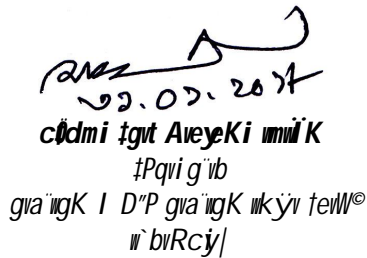 cÖdmi ‡gvt AveyeKi wmwÏK
‡Pqvig¨vb
gva¨wgK I D”P gva¨wgK wkÿv †evW©
w`bvRcyi|